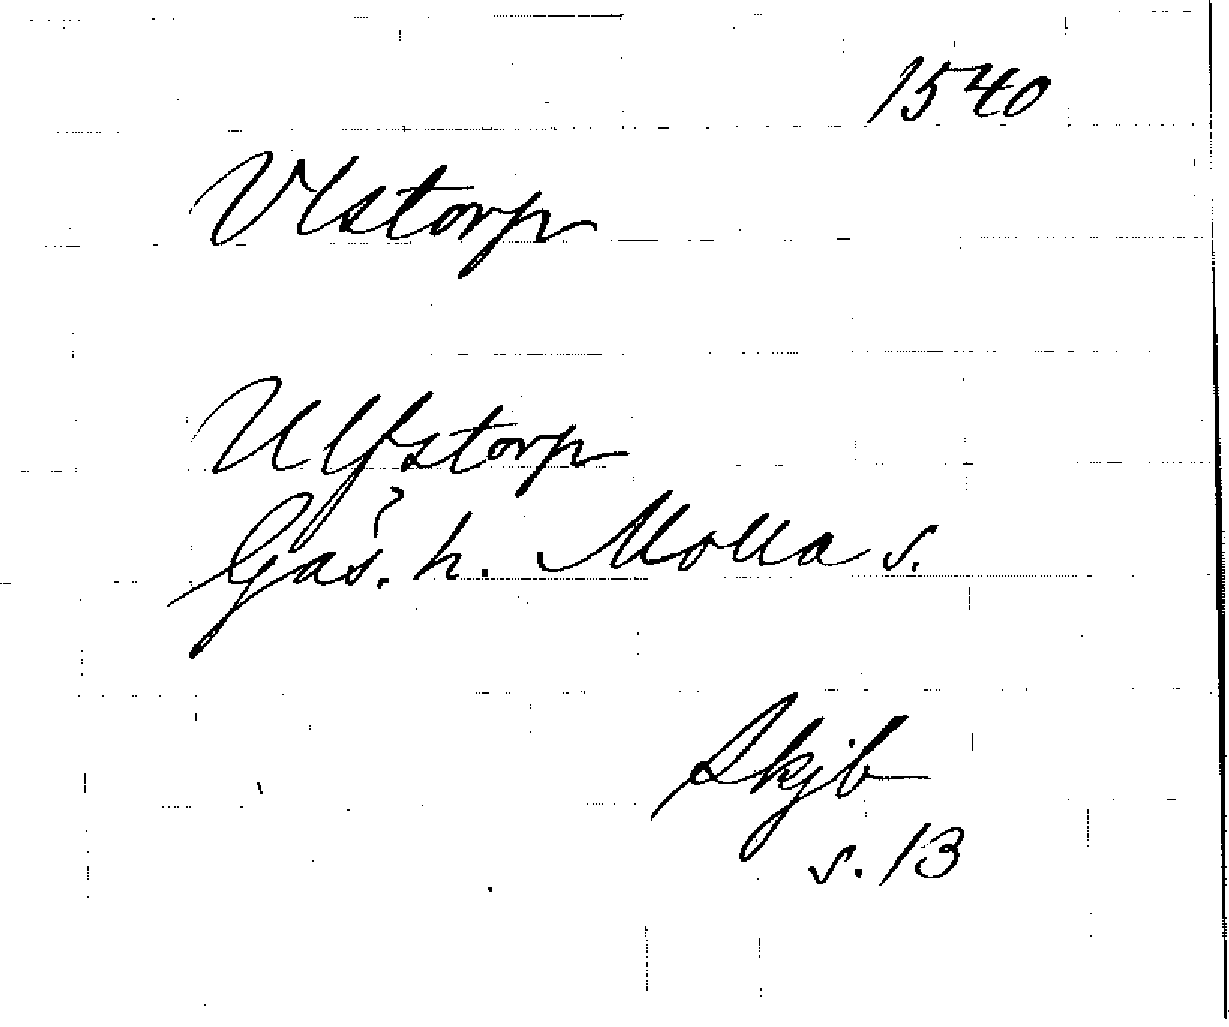 1540
Vlstorp
Ulfstorp
Gås. h. Molla s.
Skjb
s. 13